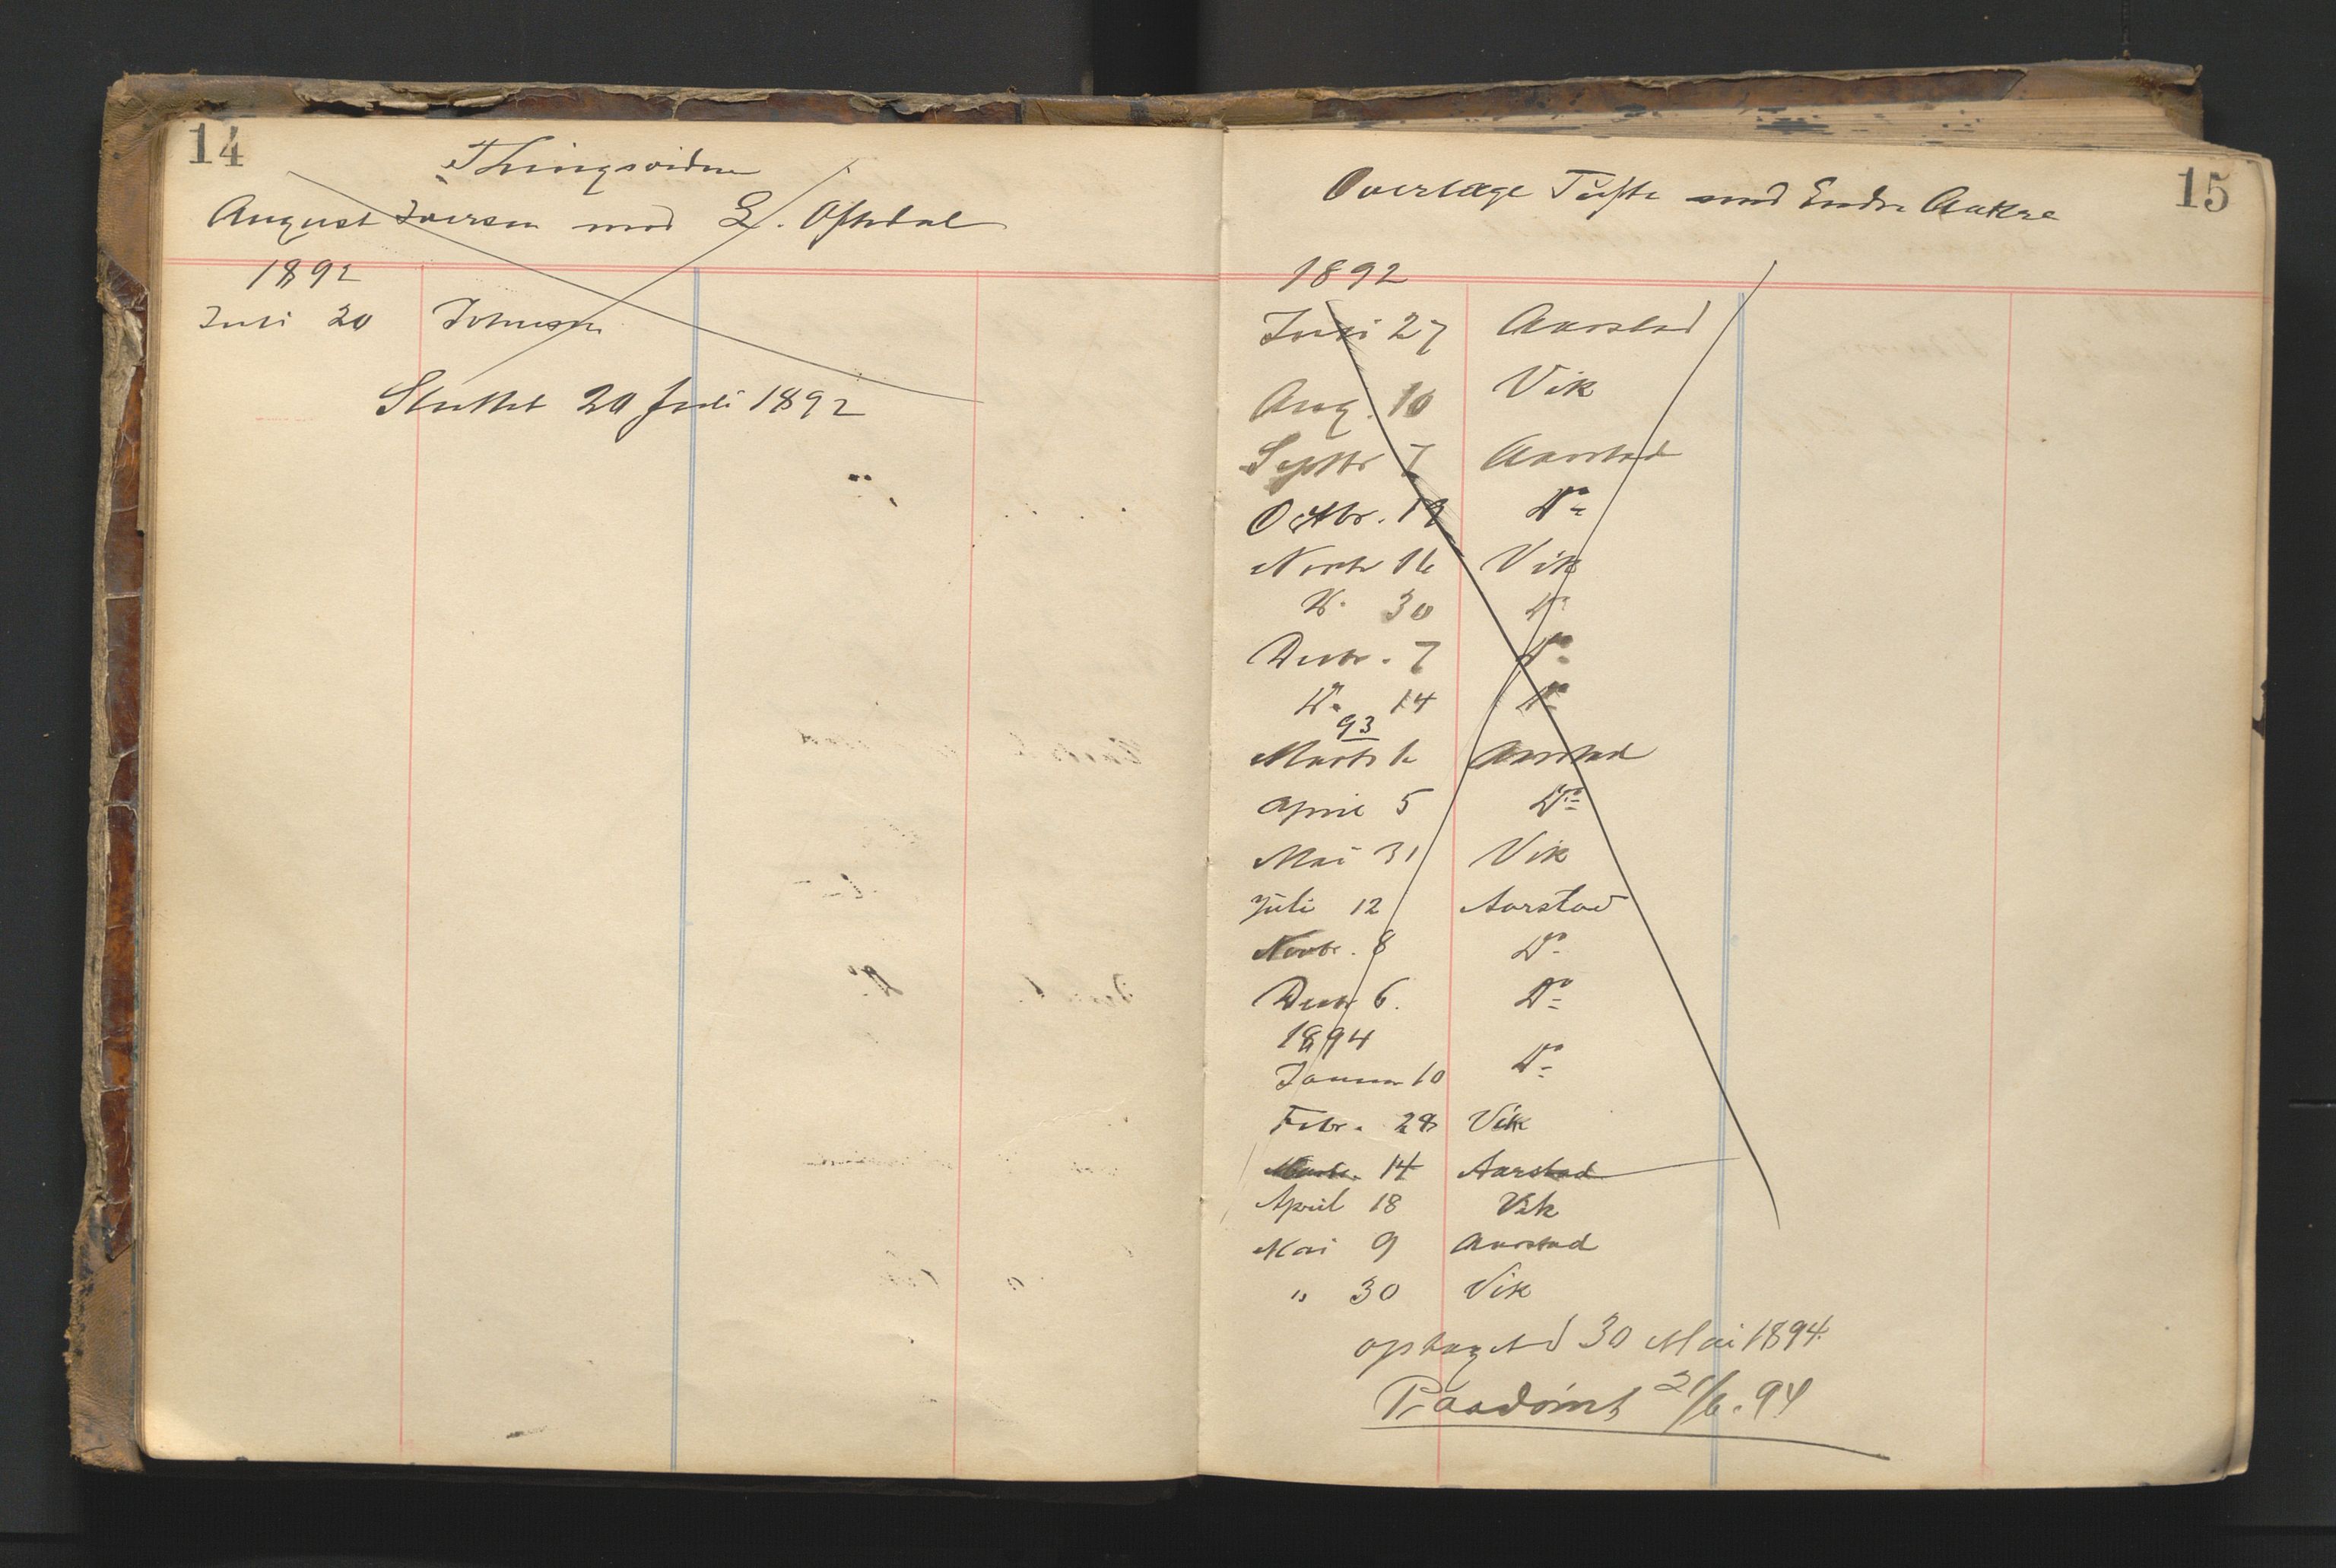 14
Thingsvidne
August Iversen mod L. Oftedal
1892
Juli 20 Johnsen
Sluttet 20 Juli 1892
15
Overlæge Tüfte mod Endre Aakre
1892
Juli 27 Aarstad
Aug. 10 Vik
Septbr 7 Aarstad
Octbr. 19 Do
Novbr 16 Vik
Do 30 Do
Decbr. 7 Do
Do 14 Do
93
Marts 1 Aarstad
April 5 Do
Mai 31 Vik
Juli 12 Aarstad
Novbr. 8 Do
Decbr 6. Do
1894
Januar 10 Do
Febr. 28 Vik
Marts. 14 Aarstad
April 18 Vik
Mai 9 Aarstad
" 30 Vik
optaget d 30 Mai 1894.
Paadömt 21/6.94